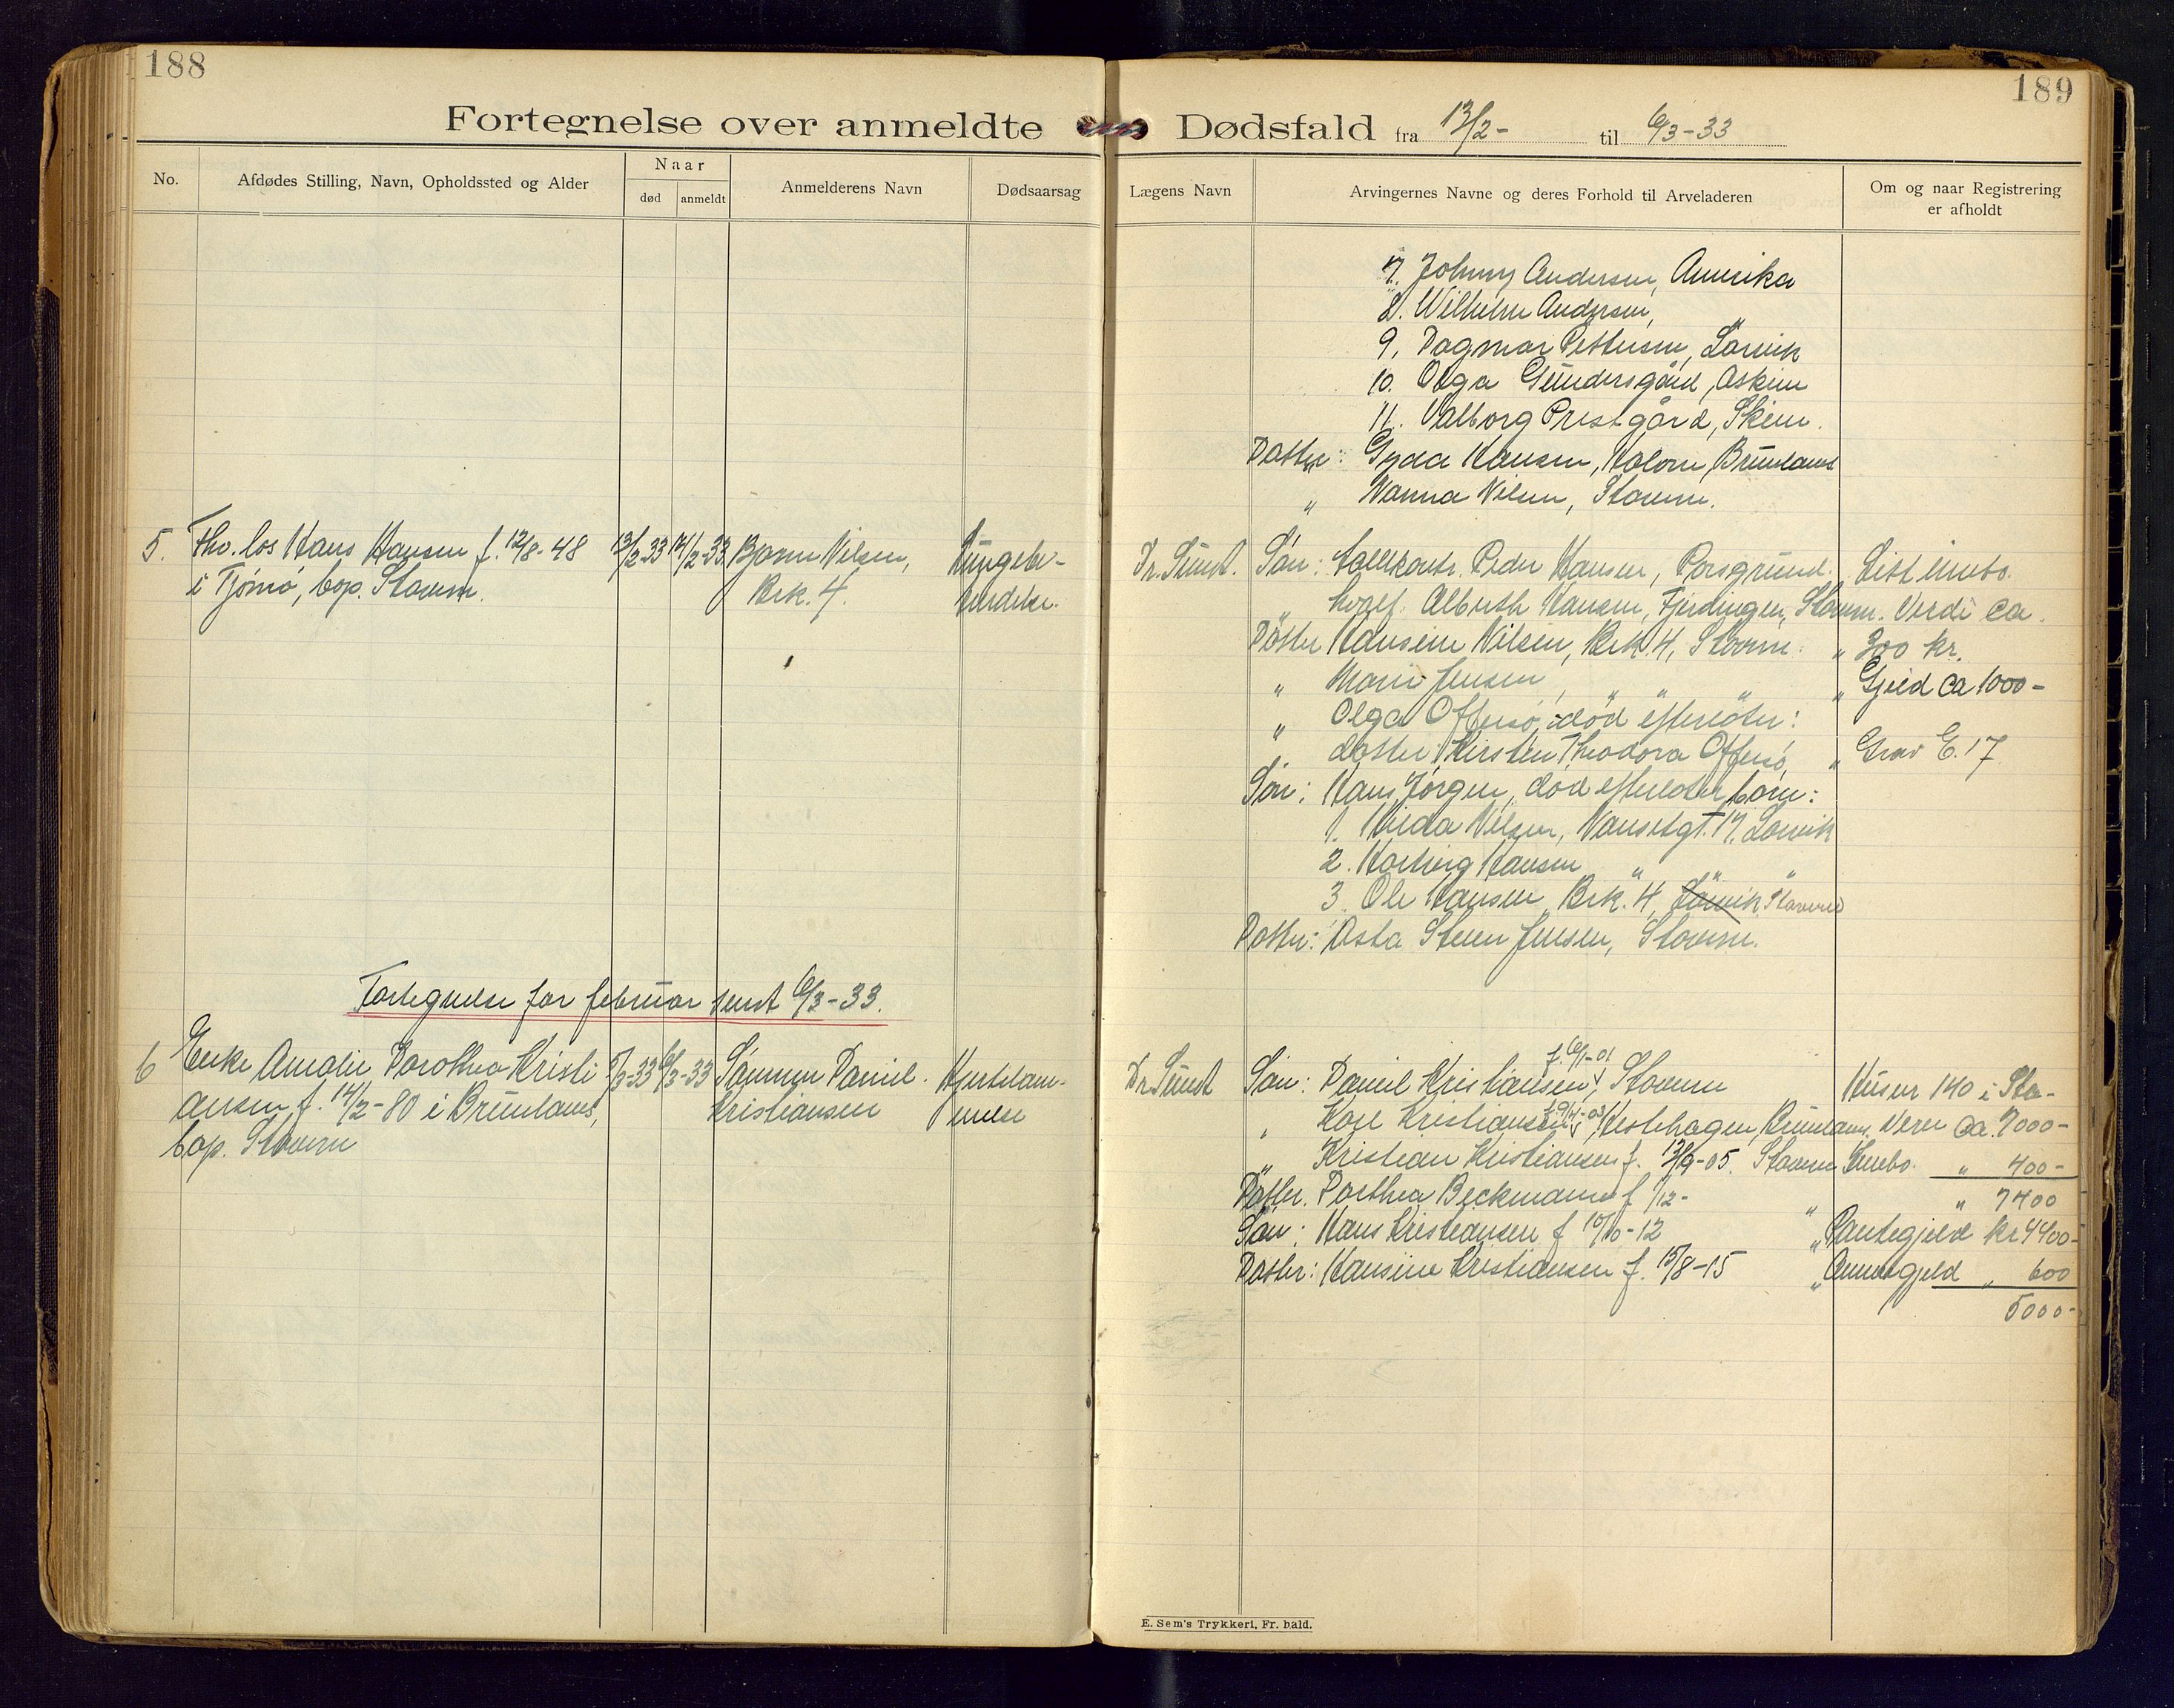 188
Fortegnelse over anmeldte
No.
Afdødes Stilling, Navn, Opholdssted og Alder
Naar
død
anmeldt
Anmelderens Navn
Dødsaarsag
5. Fhv. los Hans Hansen f. 12/8-48 13/2-33 14/2-33 Bjarne Nilsen, Lungebe-
i Tjømø, bop. Stavern. Brk. 4. tendelse.
Fortegnelse for februar sendt 6/3-33.
6 Enke Amalie Dorothea Kristi 5/3-33 6/3-33 Sønnen Daniel Hjertelam-
ansen f. 14/2-80 i Brunlanes, Kristiansen melse
bop. Stavern
189
Dødsfald fra 13/2- til 6/3-33
Lægens Navn
Arvingernes Navne og deres Forhold til Arveladeren
Om og naar Registrering
er afholdt
7. Johnny Andersen, Amerika
8. Wilhelm Andersen, "
9. Dagmar Pettersen, Larvik
10. Olga Gundersgård, Askim
11. Valborg Prestgård, Skien.
Datter: Gyda Hansen, Brunlanes
" Nanna Nilsen, Stavern.
Dr. Sunst. Søn: Peder Hansen, Porsgrund. Litt innbo.
" Albreth Hansen, Fjerdingen, Stavern. Verdi ca.
Datter Hansine Nilsen, Brk. 4, Stavern. " 300 kr.
" Marie Jensen, " " " " Gjeld ca 1000-
" Olga Offersø, død efterlater:
" datter: Kirsten Theodora Offersø, " Grav E. 17
Søn: Hans Jørgen, død efterlater barn:
1. Hilda Nilsen, Nansetgt. 17, Larvik
2. Hartvig Hansen " " "
3. Ole Hansen, Brk. 4, Larvik Stavern
Datter: Asta Steen Jensen, Stavern.
Dr Sunst Søn: Daniel Kristiansen, f. 6/1-01 Stavern Husnr 140 i Sta-
" Karl Kristiansen f. 9/4-03, Vestehagen, Brunlanes. Vern ca. 7000-
" Kristian Kristiansen f. 12/9-05. Stavern Innbo. " 400-
Datter. Dorthea Beckmann f 1/12- " " 7400
Søn: Hans Kristiansen f 10/10-12 " Pantegjeld kr 4400-
Datter: Hansine Kristiansen f. 15/8-15 " Annen gjeld " 600
5000-
E. Sem's Trykkeri, Fr.hald.